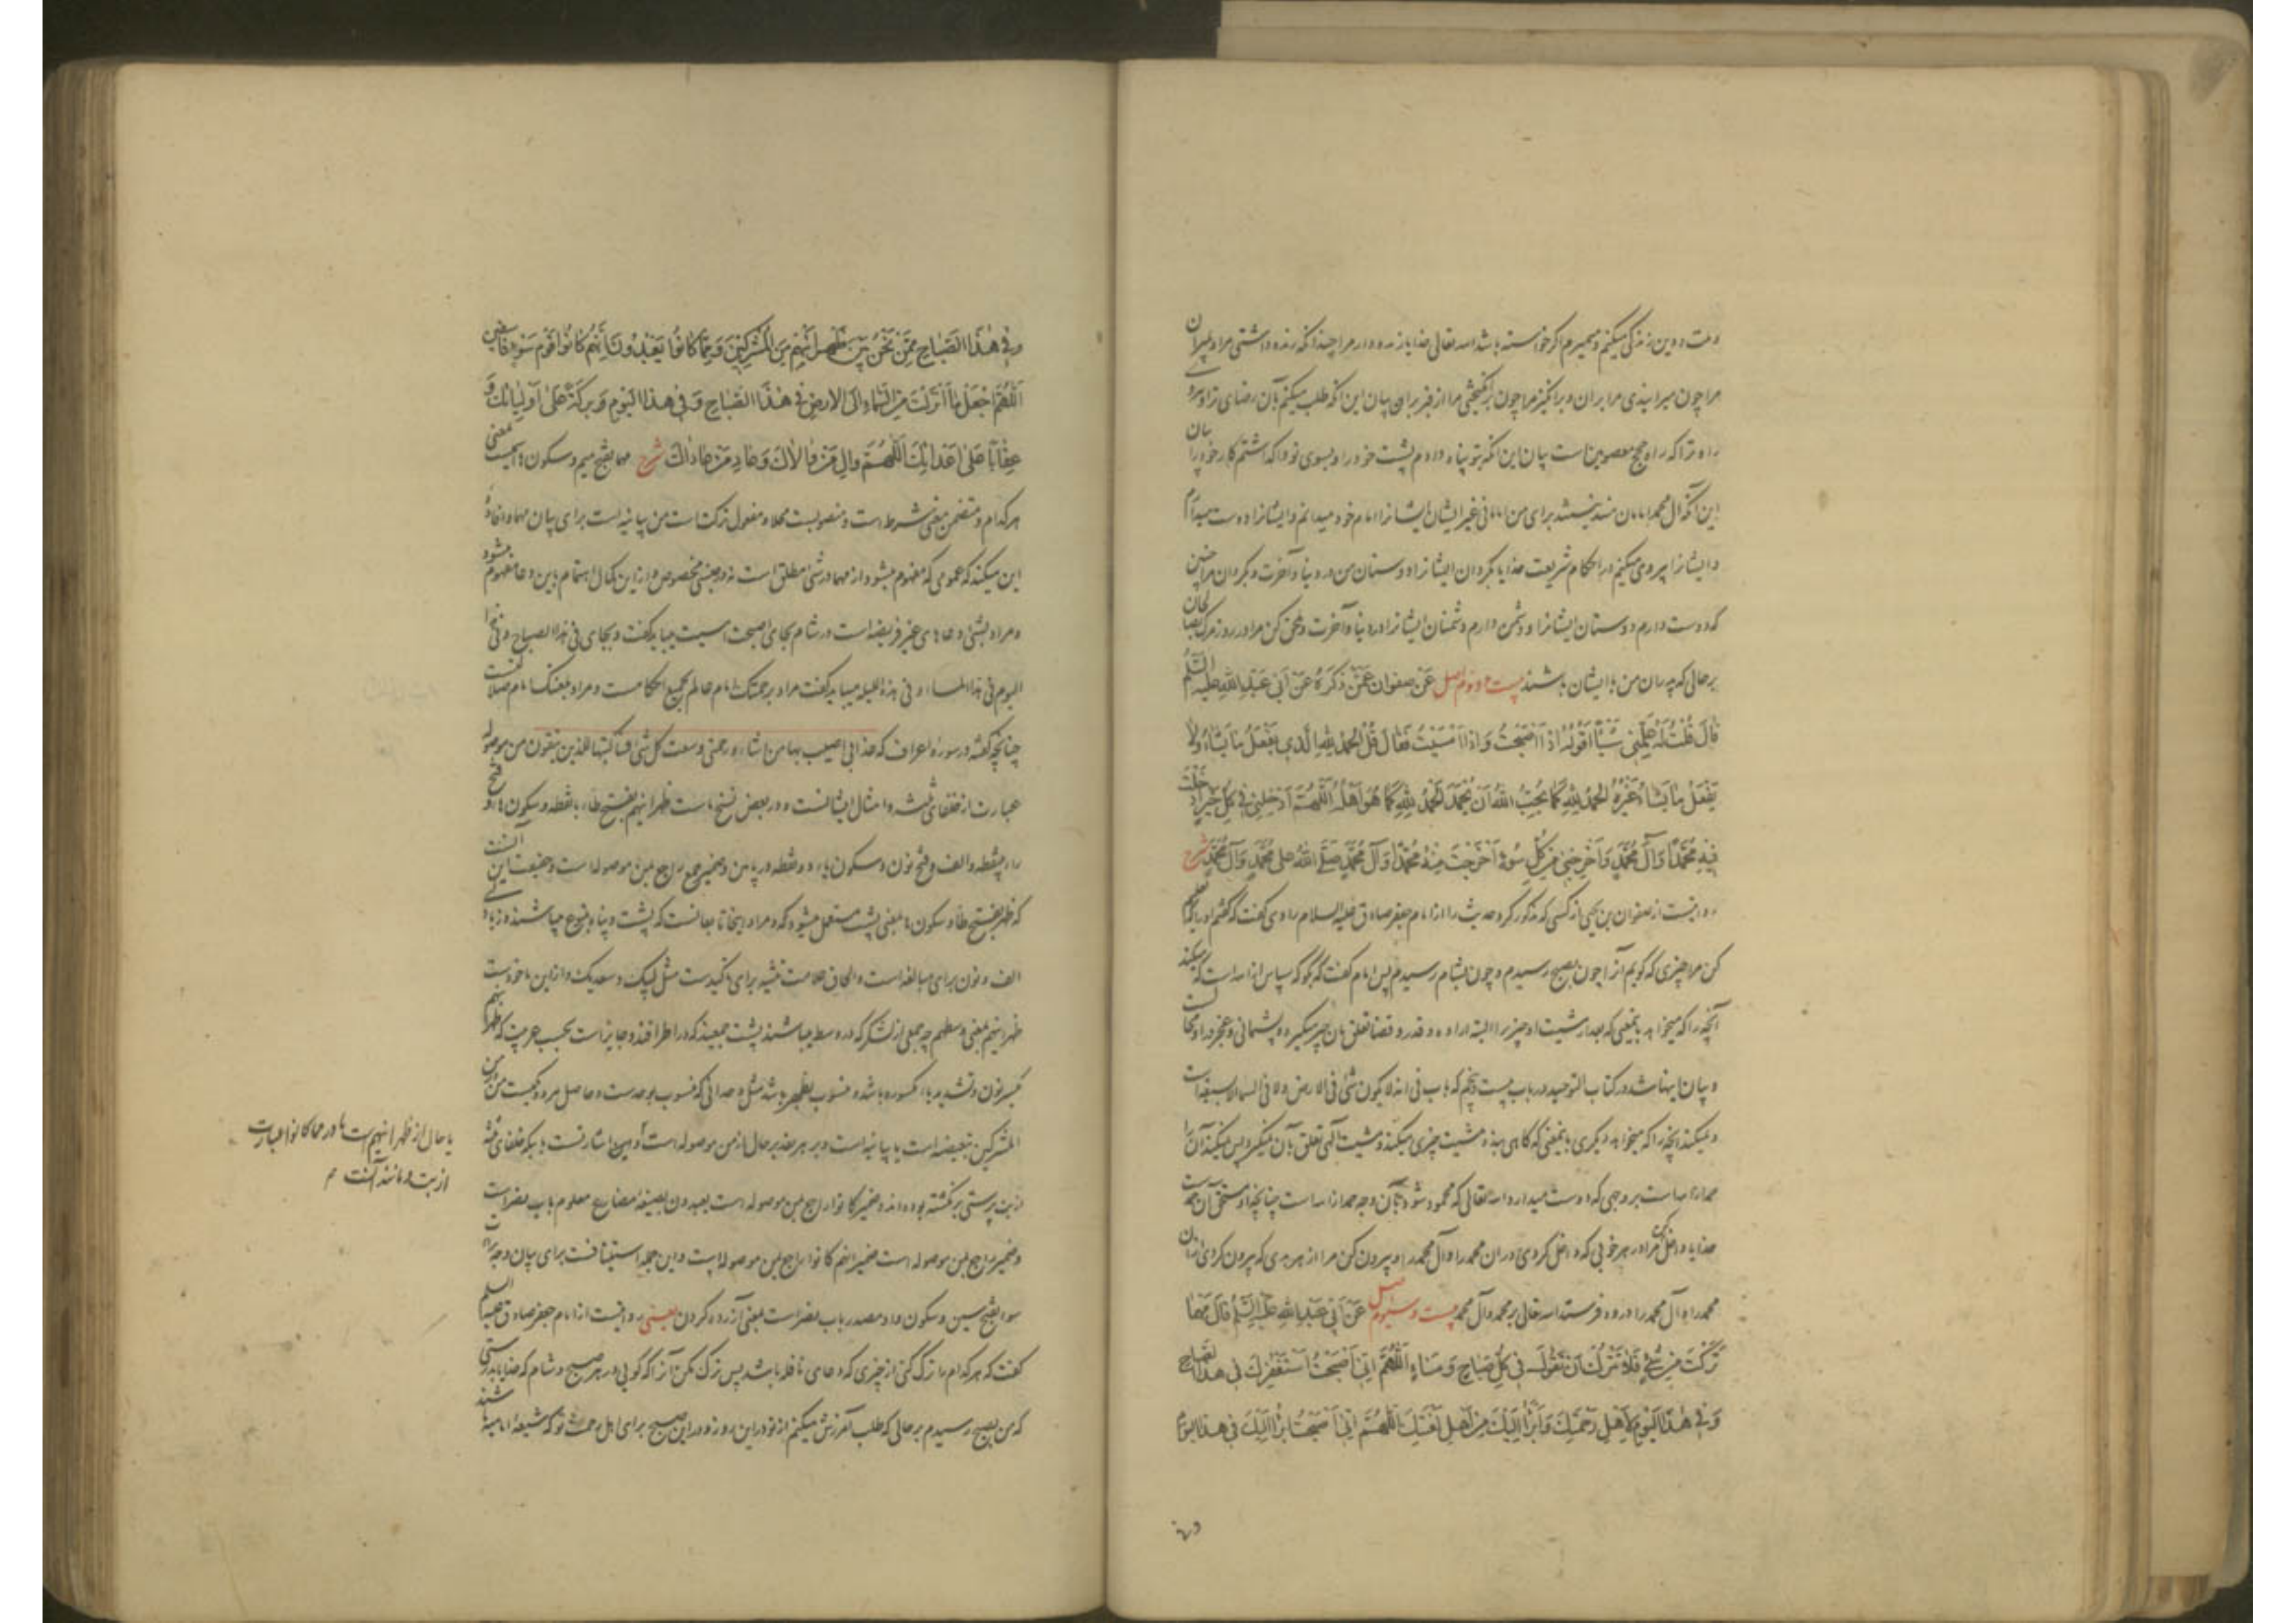 و ملت و دین زندگی میکنم و میمیرم اگر خواسته باشد الله تعالی خدایا زنده دار مرا چندانکه زنده داشتی مرا و بمیران
مرا چون میرانیدی مرا بران و برانگیز مرا چون برانگیختی مرا از قبر بران بیان این آنکه طلب میکنم بآن رضای ترا و سر
راه ترا که راه حجج معصومین است بیان این آنکه بتو پناه دادم پشت خود را و بسوی تو واگذاشتم کار خود را بیان
این آنکه آل محمد امامان منند نیستند برای من امامانی غیر ایشان ایشانرا امام خود میدانم و ایشانرا دوست میدارم
و ایشانرا پیروی میکنم در احکام شریعت خدایا بگردان ایشانرا دوستان من در دنیا و آخرت و بگردان مرا چنین
که دوست دارم دوستان ایشانرا و دشمن دارم دشمنان ایشانرا در دنیا و آخرت و ملحق کن مرا در روز مرگ بصالحان
بر حالی که پدران من با ایشان باشند بیست و دوم اصل عَنْ صفوان عَمَّنْ ذَكَرَهُ عَنْ أَبِي عَبْدِ اللهِ عَلَيْهِ السَّلَمُ
قَالَ قُلْتُ لَهُ عَلِّمْنِي شَيْئًا أَقُولُهُ إِذَا أَصْبَحْتُ وَإِذَا أَمْسَيْتُ فَقَالَ قُلِ الْحَمْدُ لِلّهِ الَّذِي يَفْعَلُ مَا يَشَاءُ وَلَا
يَفْعَلُ مَا يَشَاءُ غَيْرُهُ الْحَمْدُ لِلّهِ كَمَا يُحِبُّ اللهُ أَنْ يُحْمَدَ الْحَمْدُ لِلّهِ كَمَا هُوَ أَهْلُهُ اللّهُمَّ أَدْخِلْنِي فِي كُلِّ خَيْرٍ أَدْخَلْتَ
فِيهِ مُحَمَّدًا وَآلَ مُحَمَّدٍ وَأَخْرِجْنِي مِنْ كُلِّ سُوءٍ أَخْرَجْتَ مِنْهُ مُحَمَّدًا وَآلَ مُحَمَّدٍ صَلَّى اللهُ عَلَى مُحَمَّدٍ وَآلِ مُحَمَّدٍ شرح
روایتست از صفوان بن یحیی از کسی که مذکور کرد حدیث را از امام جعفر صادق علیه السلام راوی گفت که گفتم او را که تعلیم
کن مرا چیزی که گویم آنرا چون بصبح رسیدم و چون بشام رسیدم پس امام گفت که بگو که سپاس از الله است که میکند
آنچه را که میخواهد بمعنی که بعد از مشیت او چیز را البته اراده و قدر و قضا تعلق بآن چیز میگیرد و پشیمانی و عجز در او محال است
و بیان اینها شد در کتاب التوحید در باب بیست و پنجم که باب فی انه لا یکون شئ فی الارض و لا فی السماء الا بسبعة است
و نمیکند آنچه را که میخواهد دیگری بمعنی که گاهی بنده مشیت چیزی میکند و مشیت الهی تعلق بآن نمیگیرد پس نمیکند آن را
حمد از الله است بر وجهی که دوست میدارد الله تعالی که محمود شود بآن وجه حمد از الله است چنانچه او مستحق آن حمد است
خدایا داخل کن مرا در هر خوبی که داخل کردی در آن محمد را و آل محمد را و بیرون کن مرا از هر بدی که بیرون کردی از آن
محمد را و آل محمد را درود فرستد الله تعالی بر محمد و آل محمد بیست و سیوم اصل عَنْ أَبِي عَبْدِ اللهِ عَلَيْهِ السَّلَمُ قَالَ مَهْمَا
تَرَكْتَ مِنْ شَيْءٍ فَلَا تَتْرُكْ أَنْ تَقُولَ فِي كُلِّ صَبَاحٍ وَمَسَاءٍ اللّهُمَّ إِنِّي أَصْبَحْتُ أَسْتَغْفِرُكَ فِي هذَا الصَّبَاحِ
وَفِي هذَا الْيَوْمِ لِأَهْلِ رَحْمَتِكَ وَأَبْرَأُ إِلَيْكَ مِنْ أَهْلِ لَعْنَتِكَ اللّهُمَّ إِنِّي أَصْبَحْتُ أَبْرَأُ إِلَيْكَ فِي هذَا الْيَوْمِ
وفی
وَفِي هذَا الصَّبَاحِ مِمَّنْ نَحْنُ بَيْنَ ظَهْرَانَيْهِمْ مِنَ الْمُشْرِكِينَ وَمِمَّا كَانُوا يَعْبُدُونَ إِنَّهُمْ كَانُوا قَوْمَ سَوْءٍ فَاسِقِينَ
اللّهُمَّ اجْعَلْ مَا أَنْزَلْتَ مِنَ السَّمَاءِ إِلَى الْأَرْضِ فِي هذَا الصَّبَاحِ وَفِي هذَا الْيَوْمِ بَرَكَةً عَلَى أَوْلِيَائِكَ وَ
عِقَابًا عَلَى أَعْدَائِكَ اللّهُمَّ وَالِ مَنْ وَالَاكَ وَعَادِ مَنْ عَادَاكَ شرح مهما بفتح میم و سکون هاء اسمیست بمعنی
هر کدام و متضمن معنی شرط است و منصوبست محلا و مفعول ترکت است من بیانیه است برای بیان مهما و افاده
این میکند که عمومی که مفهوم میشود از مهما در شئ مطلق است نه در جنسی مخصوص و از این کمال اهتمام باین دعا مفهوم میشود
و مراد بشئ دعاهای غیر فریضه است و در شام بجای اصبحت امسیت میباید گفت و بجای فی هذا الصباح و فی هذا
الیوم فی هذا المساء و فی هذه اللیلة میباید گفت مراد برحمتک امام عالم بجمیع احکام است و مراد بلعنتک امام ضلالت است
چنانچه گفته در سوره اعراف که عذابی اصیب بها من اشاء و رحمتی وسعت کل شئ فساکتبها للذین یتقون من موصوله
عبارت از خلفای ثلثه و امثال ایشانست و در بعض نسخ است ظهرانیهم بفتح ظاء با نقطه و سکون هاء و فتح
راء بینقطه و الف و فتح نون و سکون یاء دو نقطه در پایین و ضمیر جمع راجع بمن موصوله است و حقیقت این آنست
که ظهر بفتح ظاء و سکون هاء بمعنی پشت مستعمل میشود که و مراد اینجا تابعانست که پشت و پناه متبوع میباشند و زیادتی
الف و نون برای مبالغه است و الحاق علامت تثنیه برای تاکیدست مثل لبیک و سعدیک و از این ماخوذست
ظهرانیهم بمعنی وسطهم چه جمعی از لشکر که در وسط میباشند پشت جمعیند که در اطرافند و جایز است بحسب عربیت که ظهرانیهم
بکسر نون و تشدید یاء مکسوره باشد و منسوب بظهر باشد مثل وحدانی که منسوب بوحدتست و حاصل هر دو یکیست من در من
المشرکین تبعیضیه است یا بیانیه است و بر هر تقدیر حال از من موصوله است و این اشارتست باینکه خلفای ثلثه
از بت پرستی برنگشته بوده‌اند و ضمیر کانوا راجع بمن موصوله است یعبدون بصیغه مضارع معلوم باب نصر است
و ضمیر راجع بمن موصوله است ضمیر انهم کانوا راجع بمن موصوله است و این جمله استینافست برای بیان وجه براءت
سوء بفتح سین و سکون واو مصدر باب نصر است بمعنی آزرده کردن یعنی روایتست از امام جعفر صادق علیه السلم
گفت که هر کدام را ترک کنی از چیزی که دعای نافله باشد پس ترک مکن آنرا که گویی در هر صبح و شام که خدایا بدرستی
که من بصبح رسیدم بر حالی که طلب آمرزش میکنم از تو در این روز و در این صبح برای اهل رحمت تو که شیعه امامیه باشند
یا حال از ظهرانیهم است ما در مما کانوا عبارت
از بت و مانند آنست م